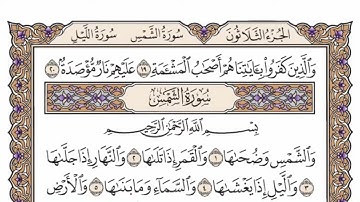 الجُزْءُ الثَّلَاثُونَ سُورَةُ الشَّمْسِ سُورَةُ اللَّيْلِ
وَٱلَّذِينَ كَفَرُوا۟ بِـَٔايَٰتِنَا هُمْ أَصْحَٰبُ ٱلْمَشْـَٔمَةِ ١٩ عَلَيْهِمْ نَارٌ مُّؤْصَدَةٌۢ ٢٠
سُورَةُ الشَّمْسِ
بِسْمِ ٱللَّهِ ٱلرَّحْمَٰنِ ٱلرَّحِيمِ
وَٱلشَّمْسِ وَضُحَىٰهَا ١ وَٱلْقَمَرِ إِذَا تَلَىٰهَا ٢ وَٱلنَّهَارِ إِذَا جَلَّىٰهَا
٣ وَٱلَّيْلِ إِذَا يَغْشَىٰهَا ٤ وَٱلسَّمَآءِ وَمَا بَنَىٰهَا ٥ وَٱلْأَرْضِ